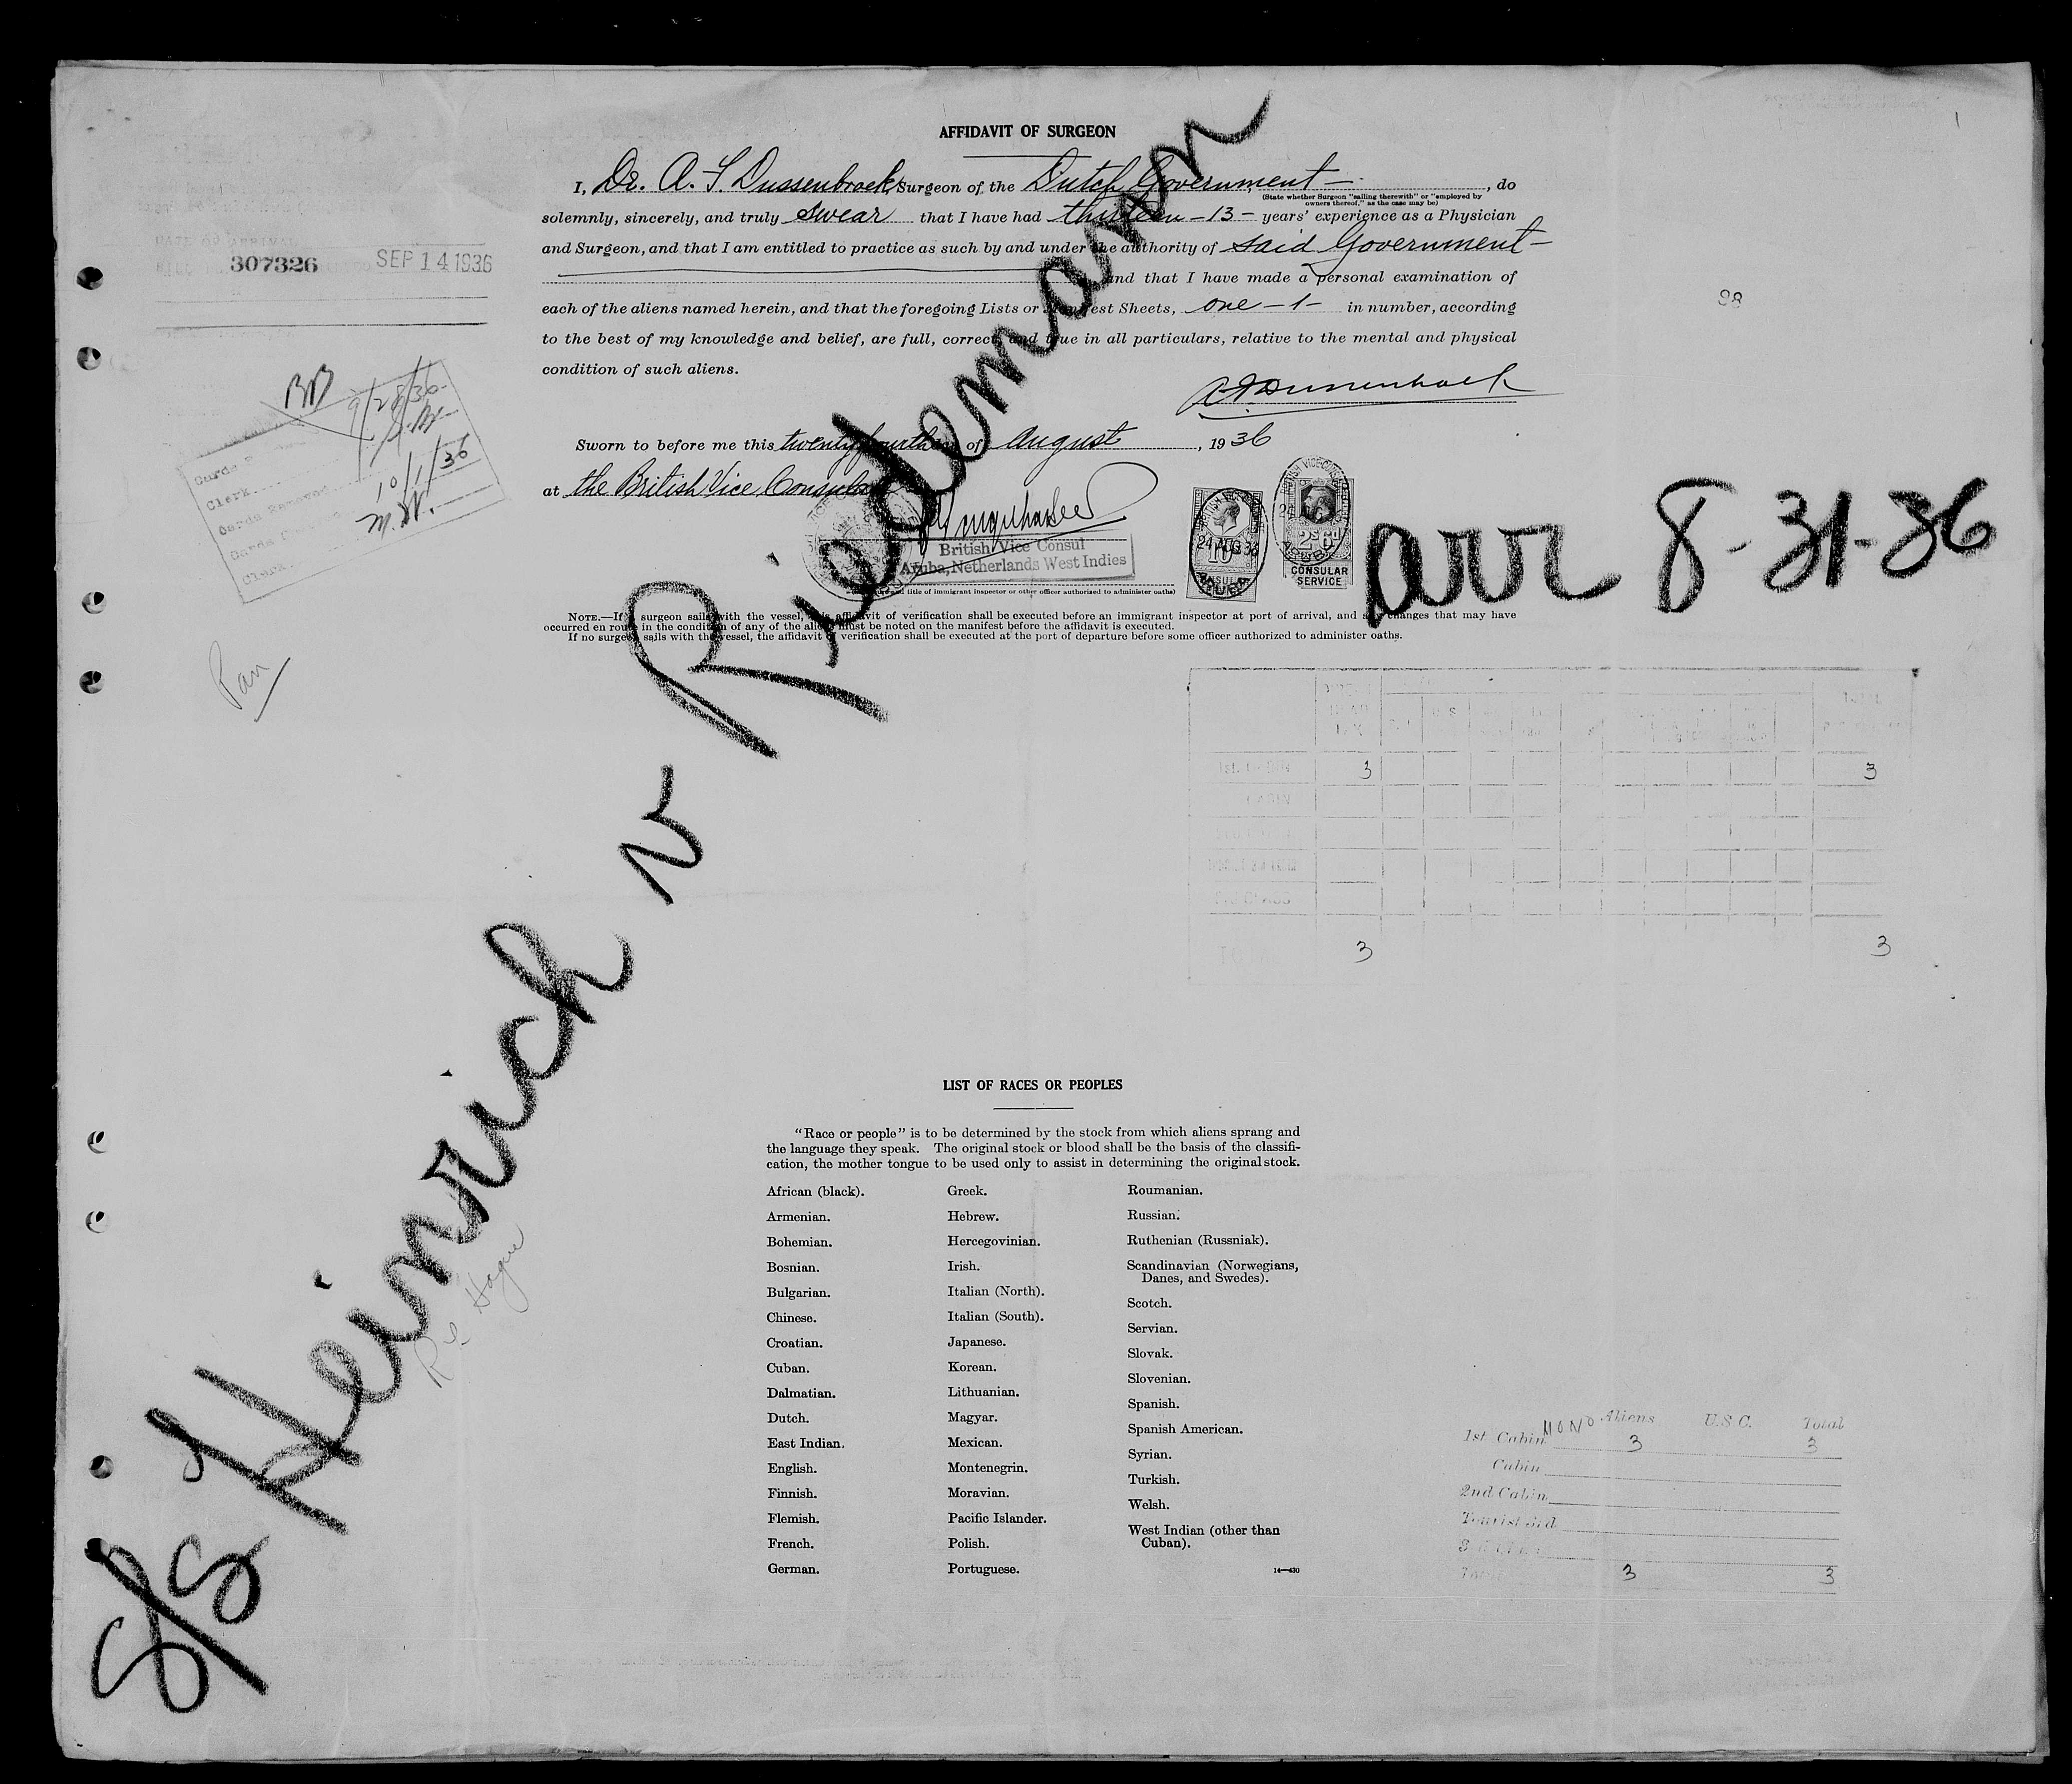 AFFIDAVIT OF SURGEON
I, Dr. A. F. Dussenbroek, Surgeon of the Dutch Government —, do
(State whether Surgeon "sailing therewith" or "employed by
owners thereof," as the case may be)
solemnly, sincerely, and truly swear that I have had thirteen -13- years' experience as a Physician
and Surgeon, and that I am entitled to practice as such by and under the authority of said Government —
and that I have made a personal examination of
each of the aliens named herein, and that the foregoing Lists or Manifest Sheets, one -1- in number, according
to the best of my knowledge and belief, are full, correct, and true in all particulars, relative to the mental and physical
condition of such aliens.
Sworn to before me this twenty fourth day of August, 1936
at the British Vice Consulate
British Vice Consul
Aruba, Netherlands West Indies
24 AUG 36
10
24 AUG
2s 6d
CONSULAR
SERVICE
title of immigrant inspector or other officer authorized to administer oaths)
NOTE.—If a surgeon sails with the vessel, this affidavit of verification shall be executed before an immigrant inspector at port of arrival, and any changes that may have
occurred en route in the condition of any of the aliens must be noted on the manifest before the affidavit is executed.
If no surgeon sails with the vessel, the affidavit of verification shall be executed at the port of departure before some officer authorized to administer oaths.
307326
SEP 14 1936
98
BB
9/28/36
Clerk
Cards Removed
10/1/36
Clerk
arr 8-31-36
S/S Heinrich v Riedemann
Re Hague
3 3
TOTAL 3 3
LIST OF RACES OR PEOPLES
"Race or people" is to be determined by the stock from which aliens sprang and
the language they speak. The original stock or blood shall be the basis of the classifi-
cation, the mother tongue to be used only to assist in determining the original stock.
African (black).
Armenian.
Bohemian.
Bosnian.
Bulgarian.
Chinese.
Croatian.
Cuban.
Dalmatian.
Dutch.
East Indian.
English.
Finnish.
Flemish.
French.
German.
Greek.
Hebrew.
Hercegovinian.
Irish.
Italian (North).
Italian (South).
Japanese.
Korean.
Lithuanian.
Magyar.
Mexican.
Montenegrin.
Moravian.
Pacific Islander.
Polish.
Portuguese.
Roumanian.
Russian.
Ruthenian (Russniak).
Scandinavian (Norwegians,
Danes, and Swedes).
Scotch.
Servian.
Slovak.
Slovenian.
Spanish.
Spanish American.
Syrian.
Turkish.
Welsh.
West Indian (other than
Cuban).
14—430
Aliens U.S.C. Total
1st Cabin 3 3
Cabin
2nd Cabin
Tourist 3rd
Total 3 3